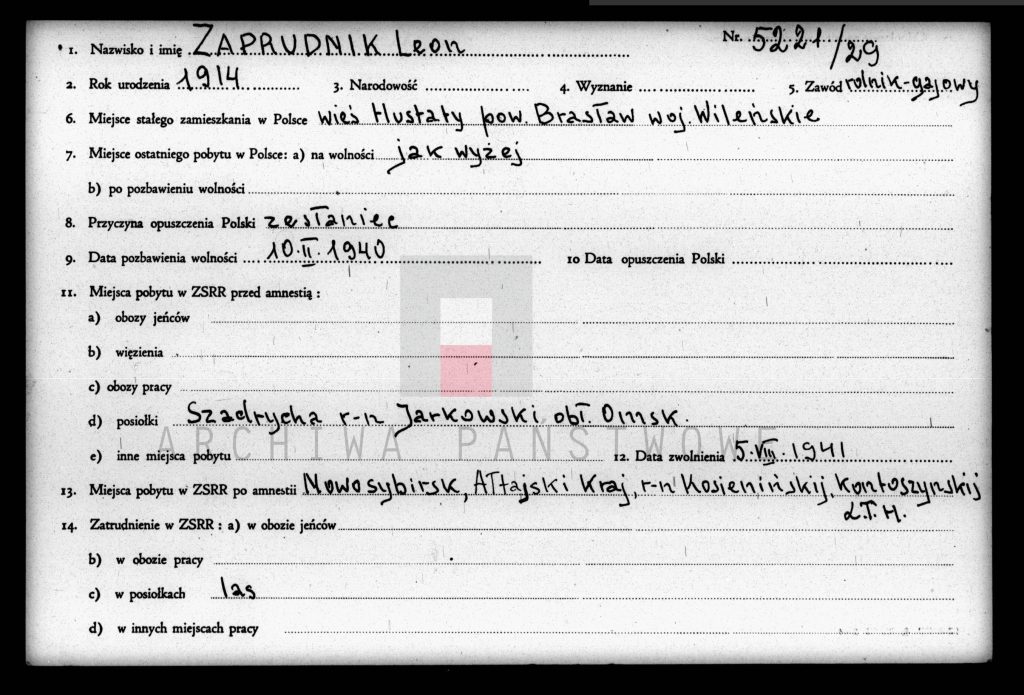 1. Nazwisko i imię ZAPRUDNIK Leon Nr. 5221/29
2. Rok urodzenia 1914 3. Narodowość 4. Wyznanie 5. Zawód rolnik-gajowy
6. Miejsce stałego zamieszkania w Polsce wieś Hustaty pow. Brasław woj. Wileńskie
7. Miejsce ostatniego pobytu w Polsce: a) na wolności jak wyżej
b) po pozbawieniu wolności
8. Przyczyna opuszczenia Polski zesłaniec
9. Data pozbawienia wolności 10.II.1940 10 Data opuszczenia Polski
11. Miejsca pobytu w ZSRR przed amnestią :
a) obozy jeńców
b) więzienia
c) obozy pracy
d) posiołki Szadrycha r-n Jarkowski obł. Omsk.
ARCHIWA PAŃSTWOWE
e) inne miejsca pobytu 12. Data zwolnienia 5.VIII.1941
13. Miejsca pobytu w ZSRR po amnestii Nowosybirsk, Ałtajski Kraj, r-n Kosieninskij, Kontoszynskij
Ł.T.H.
14. Zatrudnienie w ZSRR : a) w obozie jeńców
b) w obozie pracy
c) w posiołkach las
d) w innych miejscach pracy